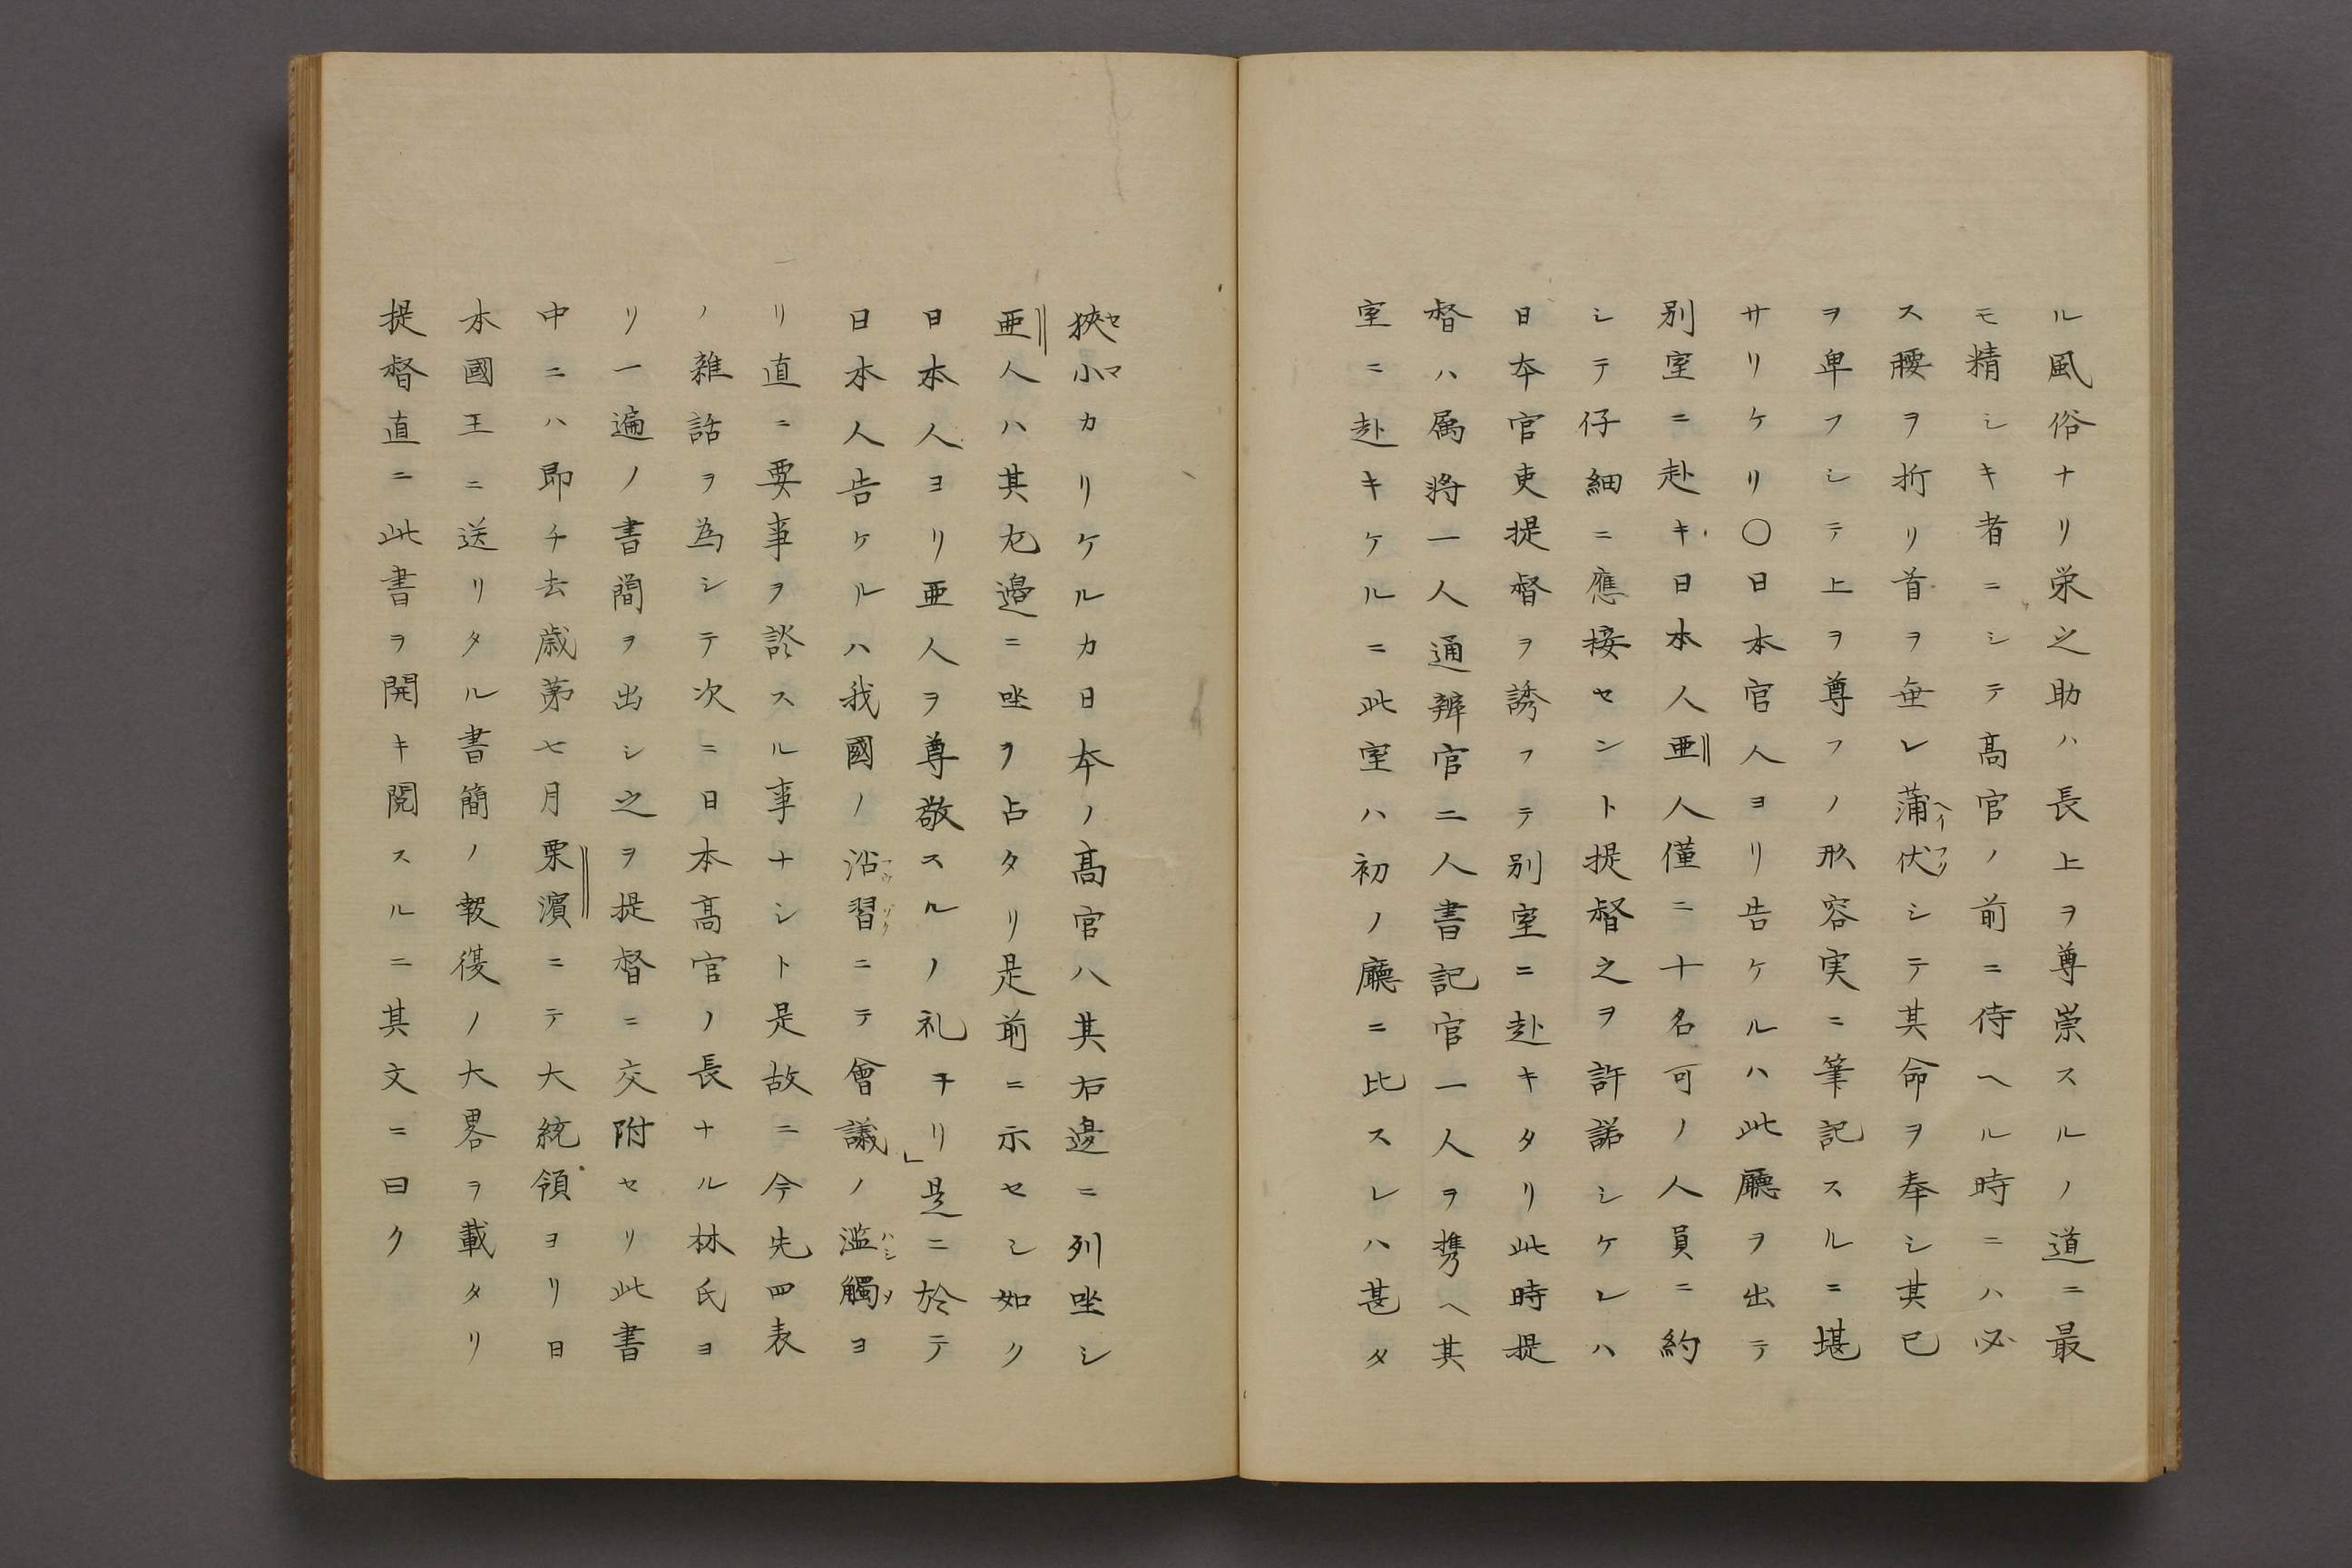 ル風俗ナリ栄之助ハ長上ヲ尊崇スルノ道ニ最
モ精シキ者ニシテ髙官ノ前ニ侍ヘル時ニハ必
ス腰ヲ折リ首ヲ垂レ蒲伏シテ其命ヲ奉シ其己
ヲ卑フシテ上ヲ尊フノ形容実ニ筆記スルニ堪
サリケリ〇日本官人ヨリ告ケルハ此廳ヲ出テ
別室ニ赴キ日本人亜人僅ニ十名可ノ人員ニ約
シテ仔細ニ應接セント提督之ヲ許諾シケレハ
日本官吏提督ヲ誘フテ別室ニ赴キタリ此時提
督ハ属将一人通辨官二人書記官一人ヲ携ヘ其
室ニ赴キケルニ此室ハ初ノ廳ニ比スレハ甚タ
狹小カリケルカ日本ノ髙官ハ其右邊ニ列坐シ
亜人ハ其左邉ニ坐ヲ占タリ是前ニ示セシ如ク
日本人ヨリ亜人ヲ尊敬スルノ礼ナリ」是ニ於テ
日本人告ケルハ我國ノ沿習ニテ會議ノ濫觸ヨ
リ直ニ要事ヲ談スル事ナシト是故ニ今先四表
ノ雑話ヲ為シテ次ニ日本髙官ノ長ナル林氏ヨ
リ一遍ノ書簡ヲ出シ之ヲ提督ニ交附セリ此書
中ニハ即チ去歳第七月栗濵ニテ大統領ヨリ日
本國王ニ送リタル書簡ノ報復ノ大畧ヲ載タリ
提督直ニ此書ヲ開キ閲スルニ其文ニ曰ク